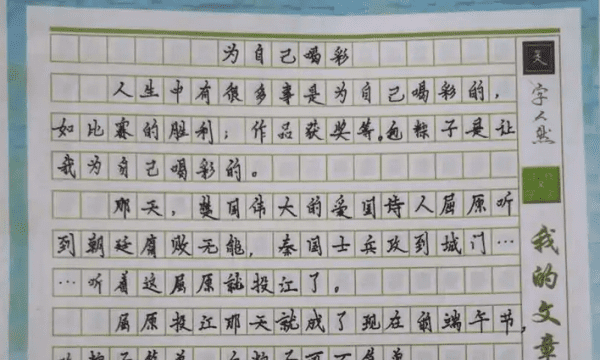 为自己喝彩
人生中有很多事是为自己喝彩的,
如比赛的胜利;作品获奖等。包粽子是让
我为自己喝彩的。
那天,楚国伟大的爱国诗人屈原听
到朝廷腐败无能,秦国士兵攻到城门…
…听着这屈原就投江了。
屈原投江那天就成了现在的端午节,
字人然
我的文章